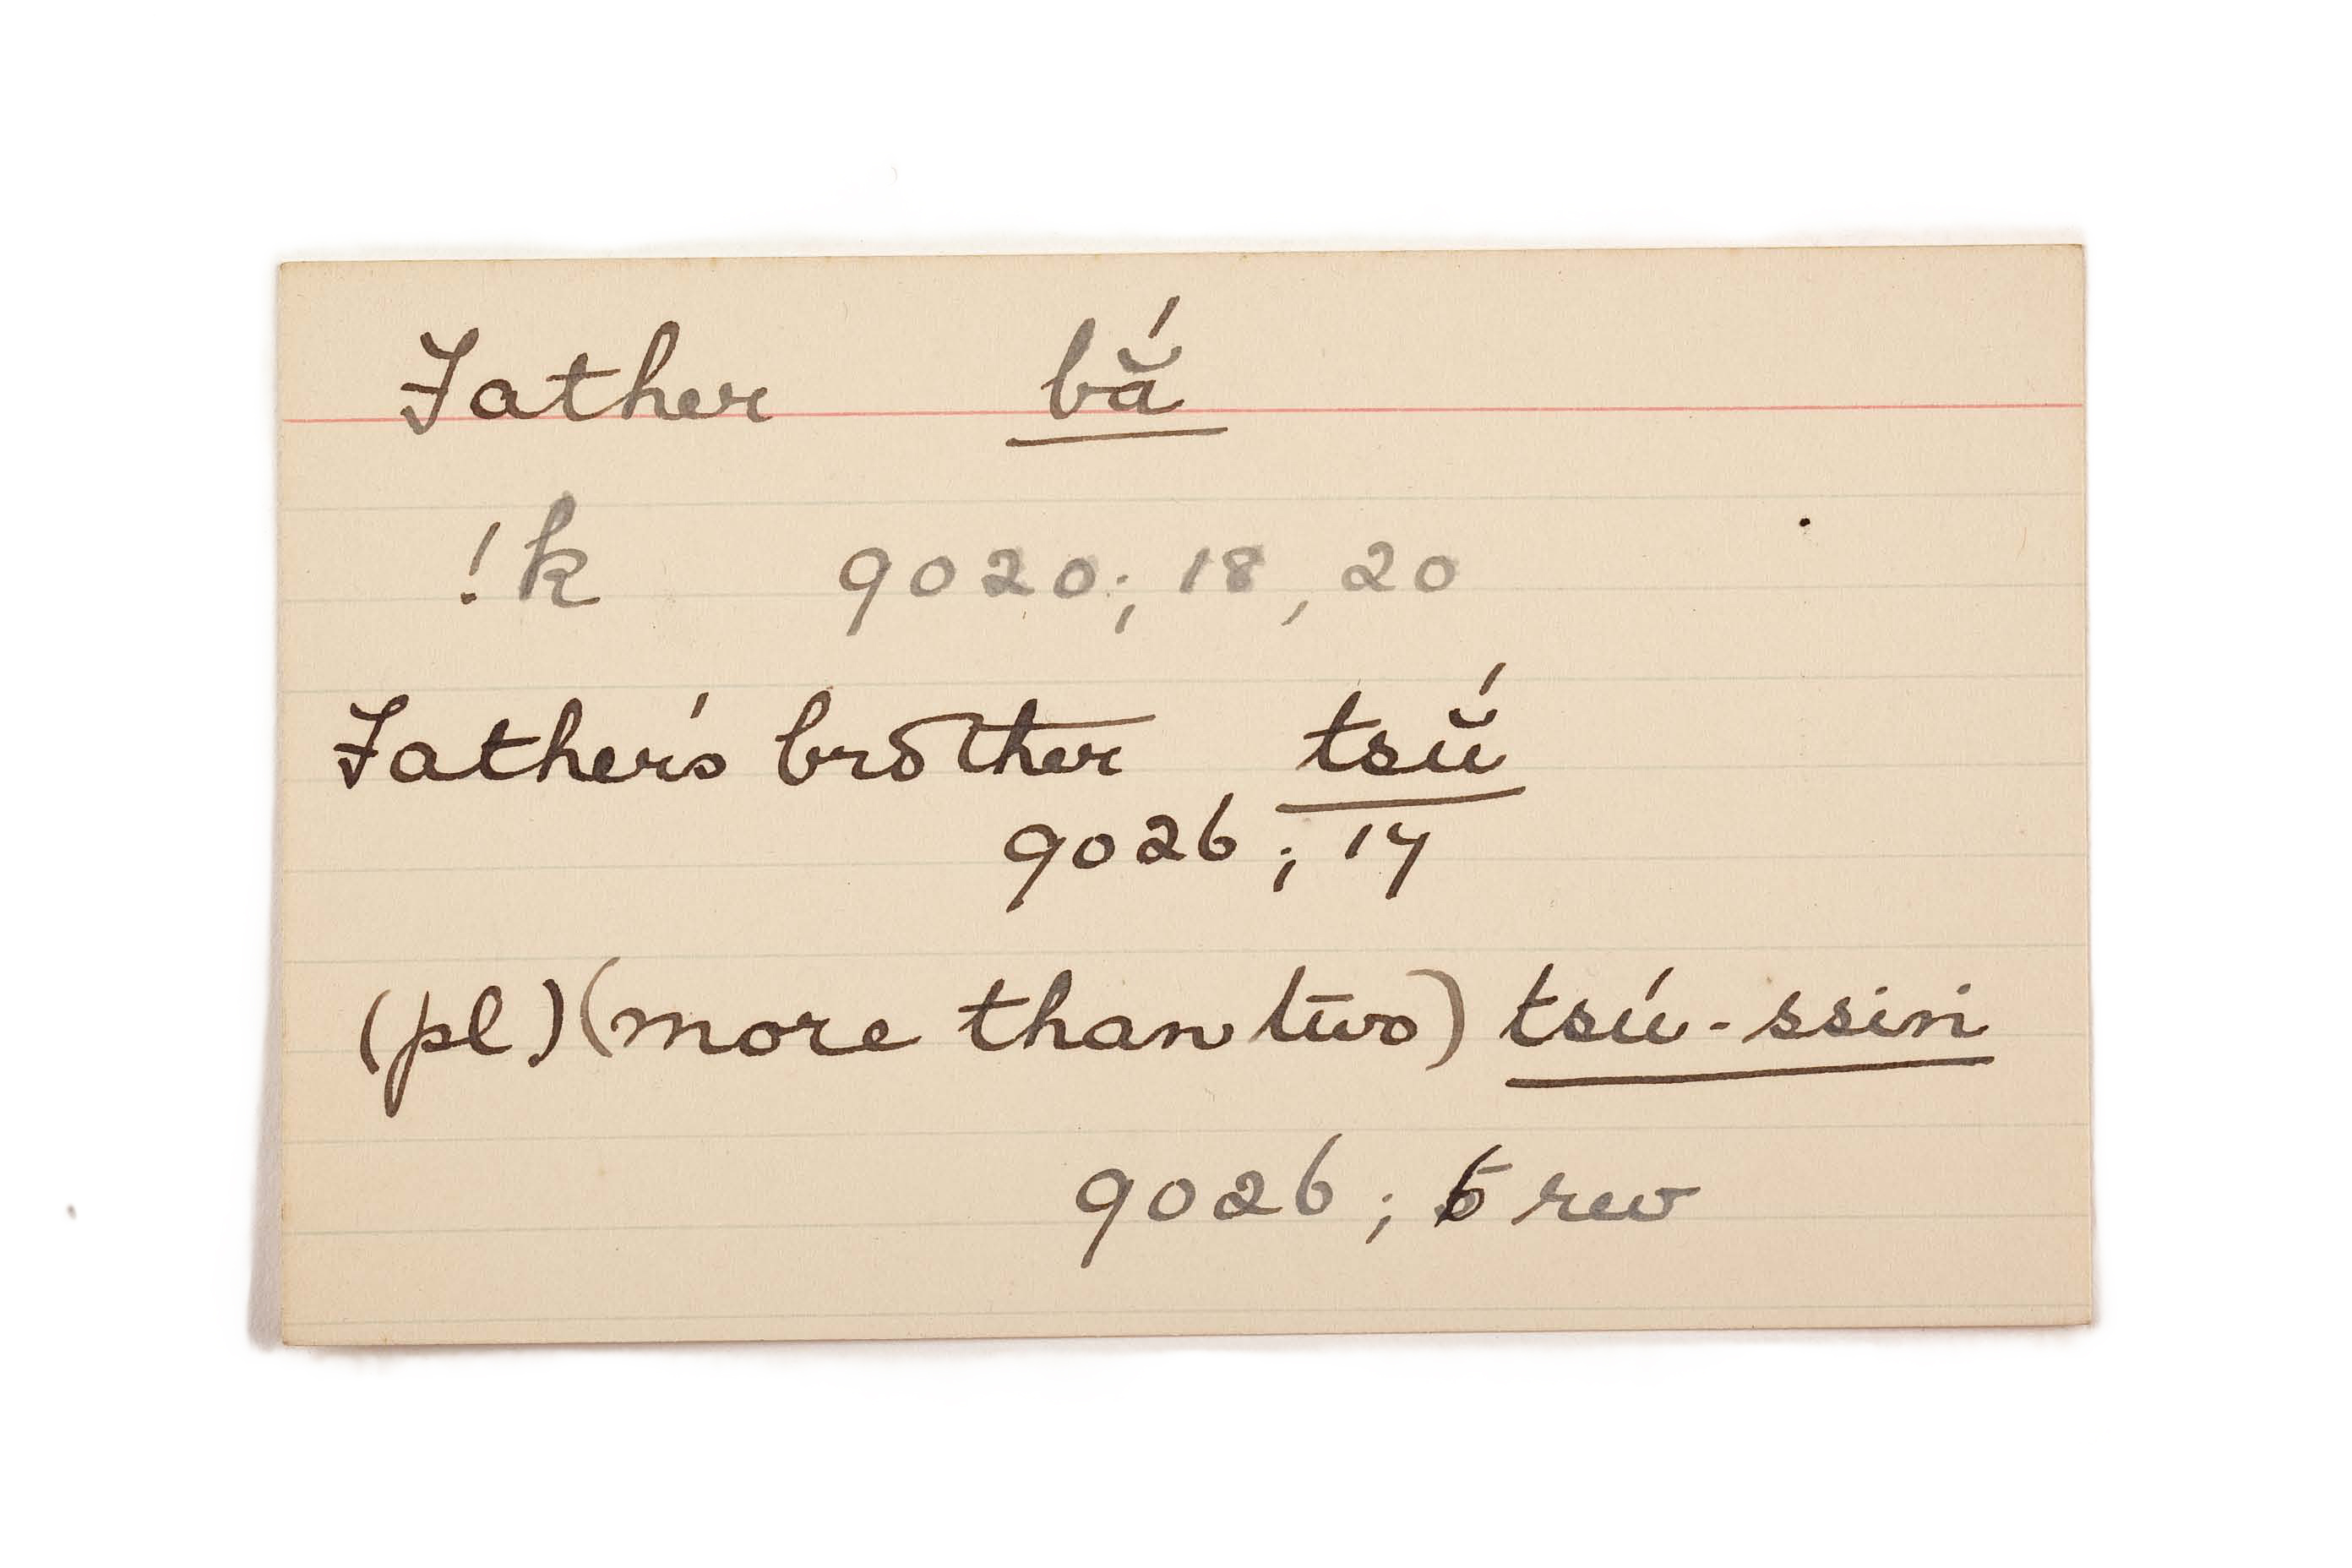 Father bắ
!k 9020; 18, 20
Father's brother tsŭ́
9026; 17
(pl) (more than two) tsú-ssin
9026; rev